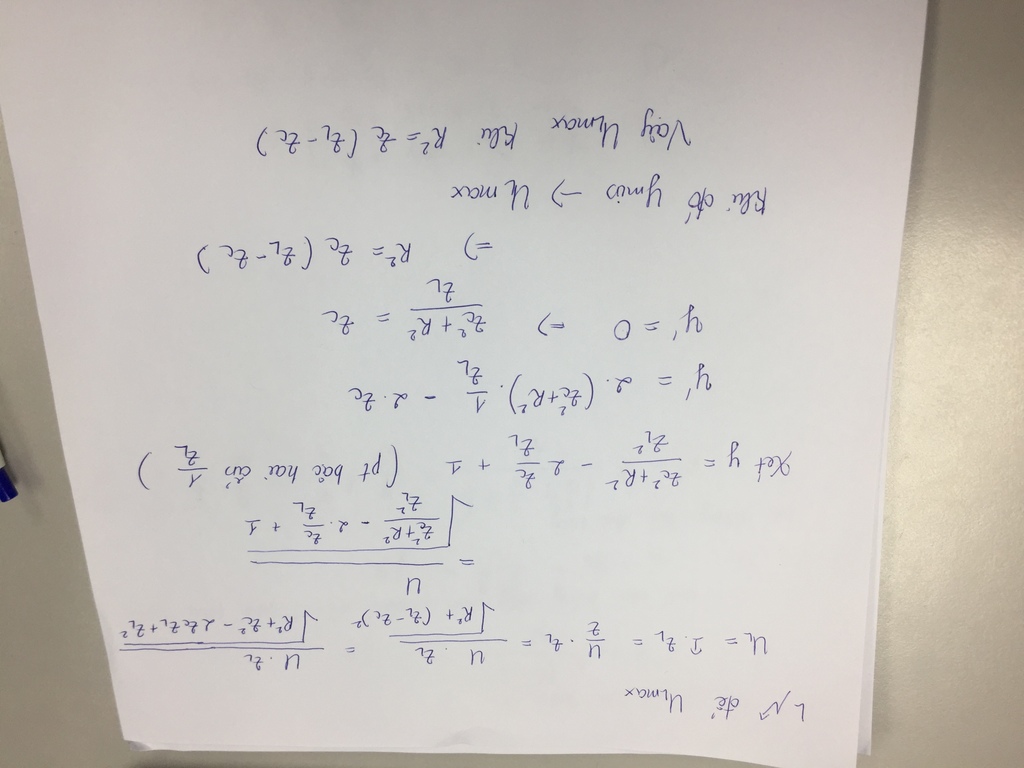 L↗ để ULmax
UL = I.ZL = U/Z . ZL = U.ZL/√(R² + (ZL - ZC)²) = U.ZL/√(R² + ZC² - 2ZCZL + ZL²)
= U/√((ZC² + R²)/ZL² - 2.ZC/ZL + 1)
Xét y = (ZC² + R²)/ZL² - 2 ZC/ZL + 1 (pt bậc hai của 1/ZL)
y' = 2.(ZC² + R²).1/ZL - 2.ZC
y' = 0 => (ZC² + R²)/ZL = ZC
=> R² = ZC (ZL - ZC)
Khi đó ymin -> ULmax
Vậy ULmax khi R² = ZC (ZL - ZC)